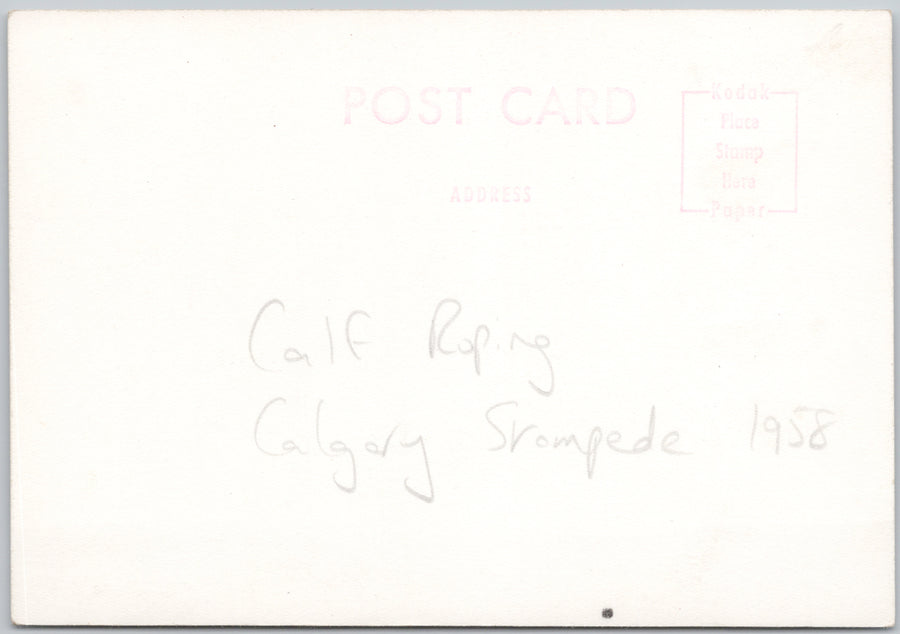 POST CARD
Kodak
Place
Stamp
Here
Paper
ADDRESS
Calf Roping
Calgary Stampede 1958